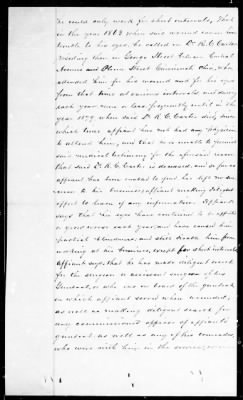 he could only work for short intervals, That
in the year 1863 when said wound came in
trouble to his eyes, he called on Dr R. C. Carter
residing then on George Street between Central
Avenue and Plum Street Cincinnati Ohio, who
attended him for his wound and for his eyes
from that time at various intervals and during
each year more or less frequently until in the
year 1879 when said Dr R. C. Carter died, since
which time affiant has not had any physician
to attend him, and that he is unable to furnish
said medical testimony for the aforesaid reason
that said Dr R. C. Carter is deceased and as far as
affiant has been unable to find he left no
to his business, affiant making diligent
effort to learn of any information. Affiant
says that his eyes have continued to be affected
a good worse each year, and have caused him
partial blindness and still disable him from
working at his business, except for short intervals
Affiant says, that he has made diligent search
for the surgeon or assistant surgeon of his
Gunboat, or who was on board of the gunboat
on which affiant served when wounded,
as well as making diligent search for
any commissioned officer of affiant's
gunboat as well as any of his comrades,
who were with him in the service